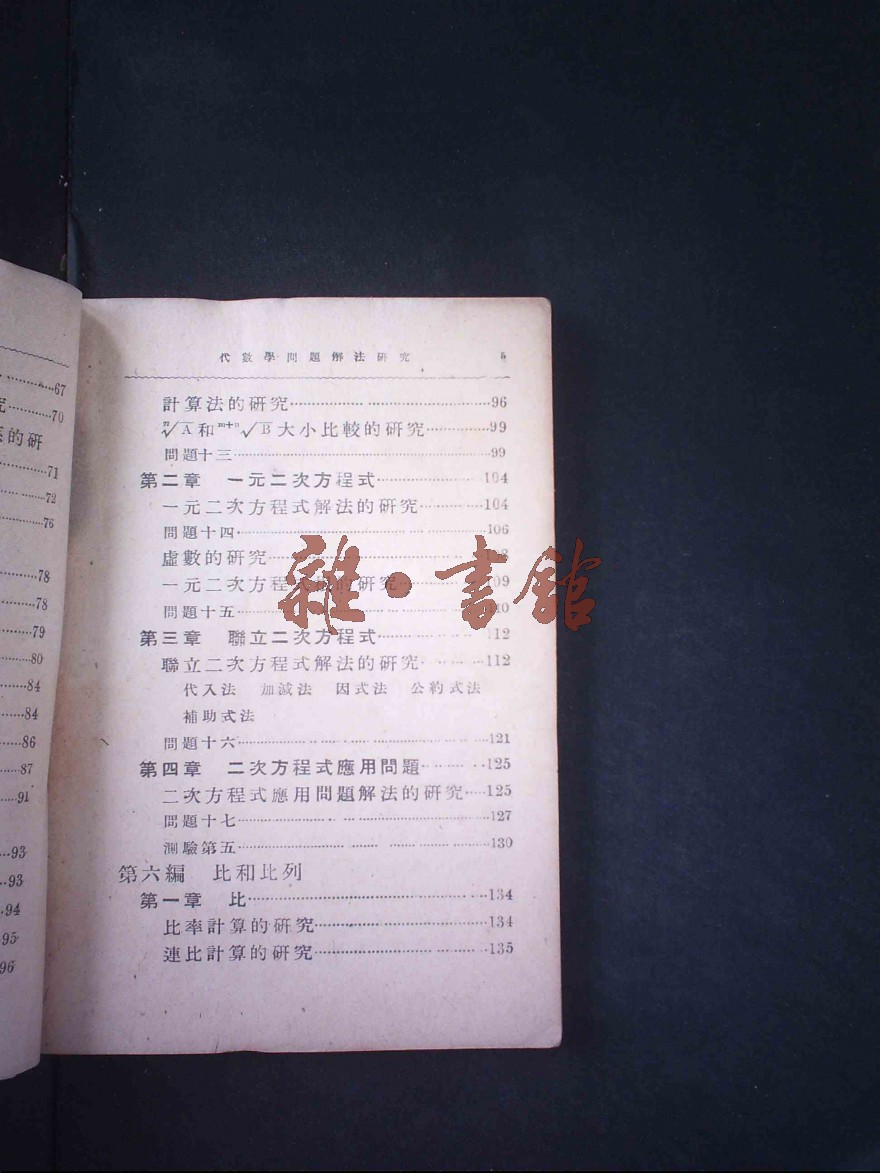 67
70
的研
71
72
76
78
78
79
80
84
84
86
87
91
93
93
94
95
96
代數學問題解法研究 5
計算法的研究 96
ⁿ√A 和 ᵐ⁺ⁿ√B 大小比較的研究 99
問題十三 99
第二章 一元二次方程式 104
一元二次方程式解法的研究 104
問題十四 106
虛數的研究
一元二次方程式根的研究 109
問題十五 110
第三章 聯立二次方程式 112
聯立二次方程式解法的研究 112
代入法 加減法 因式法 公約式法
補助式法
問題十六 121
第四章 二次方程式應用問題 125
二次方程式應用問題解法的研究 125
問題十七 127
測驗第五 130
第六編 比和比列
第一章 比 134
比率計算的研究 134
連比計算的研究 135
雜·書館